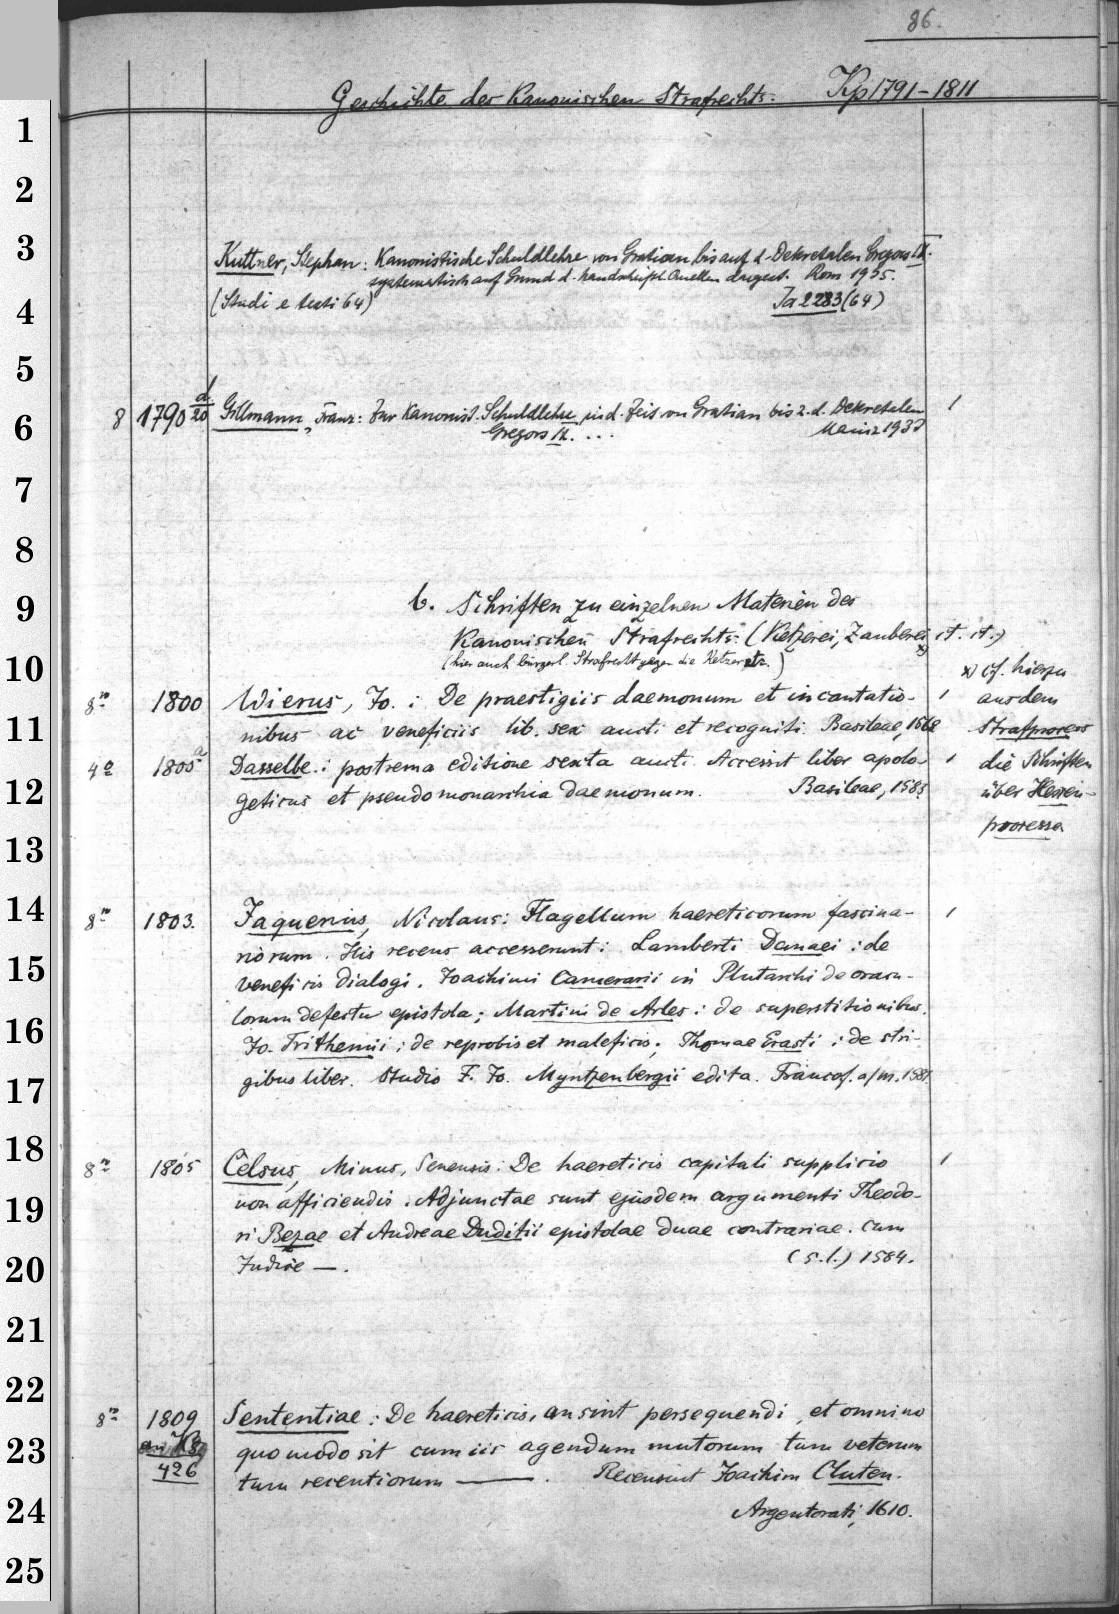 86.
Geschichte des Kanonischen Strafrechts. Kp 1791-1811
1
2
3
Kuttner, Stephan: Kanonistische Schuldlehre von Gratian bis auf d. Dekretalen Gregors IX.
systematisch auf Grund d. handschriftl. Quellen dargest. Rom 1935.
4
(Studi e testi 64) Ja 2283 (64)
5
6
8 1790 d/20 Gillmann, Franz: Zur Kanonist. Schuldlehre in d. Zeit von Gratian bis z. d. Dekretalen 1
Gregors IX. ... Mainz 1935
7
8
9
b. Schriften zu einzelnen Materien des
Kanonischen Strafrechts: (Ketzerei, Zauberei x) et. et.)
10
(hier auch bürgerl. Strafrecht gegen die Ketzer etc.)
x) cf. hierzu
aus dem
Strafprozess
die Schriften
über Hexen-
prozesse
8° 1800 Wierus, Jo.: De praestigiis daemonum et incantatio- 1
11
nibus ac veneficiis lib. sex aucti et recogniti. Basileae, 1568
4° 1805 a Dasselbe: postrema editione sexta aucti. Accessit liber apolo- 1
12
geticus et pseudomonarchia daemonum. Basileae, 1583
13
14
8° 1803. Jaquerius, Nicolaus: Flagellum haereticorum fascina- 1
riorum. His recens accesserunt: Lamberti Danaei: de
15
veneficis dialogi. Joachimi Camerarii in Plutarchi de oracu-
lorum defectu epistola; Martini de Arles: de superstitionibus.
16
Jo. Trithemii: de reprobis et maleficis; Thomae Erasti: de stri-
17
gibus liber. Studio F. Jo. Myntzenbergii edita. Francof. a/m. 1581
18
8° 1805 Celsus, Minus, Senensis: De haereticis capitali supplicio 1
19
non afficiendis. Adjunctae sunt ejusdem argumenti Theodo-
ri Bezae et Andreae Duditii epistolae duae contrariae. Cum
20
Indice —. (s.l.) 1584.
21
22
8° 1809 Sententiae: De haereticis, an sint persequendi, et omnino
23
quomodo sit cum iis agendum mutorum tum veterum
426 tum recentiorum —. Recensuit Joachim Cluten.
24
Argentorati, 1610.
25